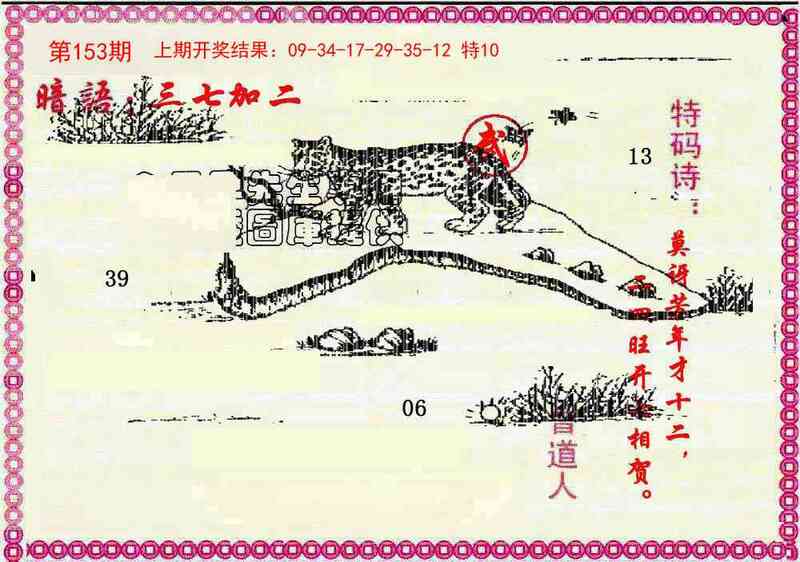 第153期
上期开奖结果：09-34-17-29-35-12 特10
暗語：三七加二
特码诗：
莫讶芳年才十二，
二四旺开
相贺。
13
39
06
曾道人